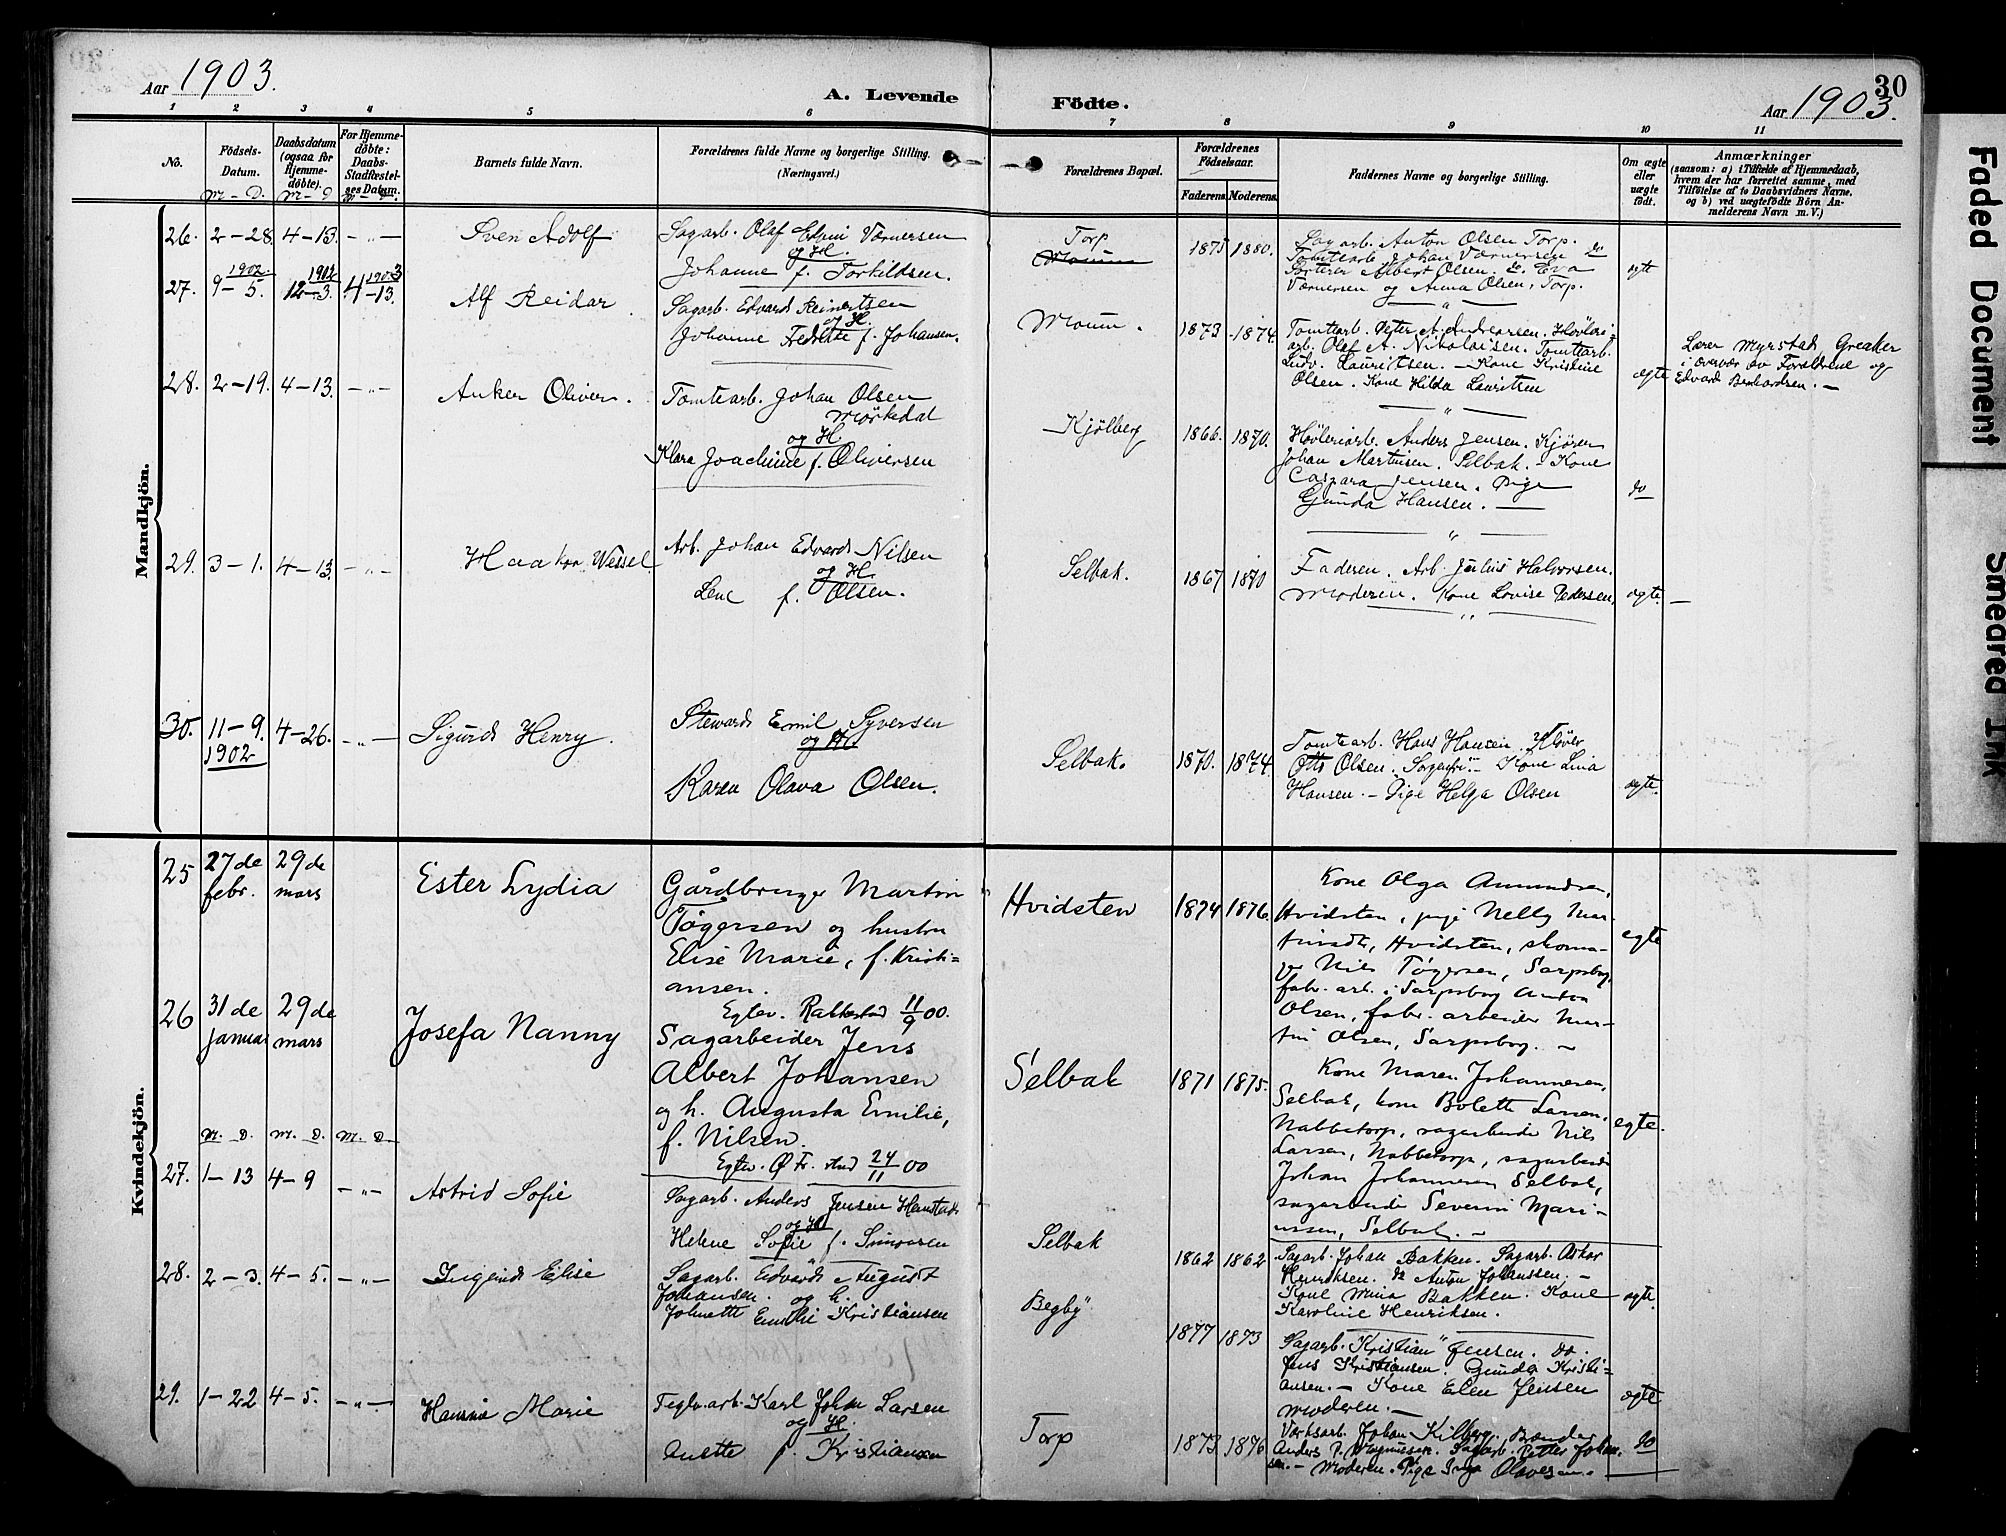 Aar 1903.
A. Levende
Födte.
Aar 1903.
30
1 2 3 4 5 6 7 8 9 10 11
No.
Födsels-
Datum.
M - D.
Daabsdatum
(ogsaa for
Hjemme-
döbte).
M - D
For Hjemme-
döbte:
Daabs-
Stadfæstel-
ses Datum.
M - D.
Barnets fulde Navn.
Forældrenes fulde Navne og borgerlige Stilling.
(Næringsvei.)
Forældrenes Bopæl.
Forældrenes
Födselsaar.
Faderens Moderens
Faddernes Navne og borgerlige Stilling.
Om ægte
eller
uægte
födt.
Anmærkninger
(saasom: a) i Tilfælde af Hjemmedaab,
hvem der har forrettet samme, med
Tilföielse af to Daabsvidners Navne,
og b) ved uægtefödte Börn An-
melderens Navn m. V.)
Mandkjön.
26. 2-28. 4-13. -"-
Sven Adolf
Sagarb. Olaf Edvin Værnersen
og H.
Johanne f. Torkildsen.
Torp
1875 1880.
Sagarb. Anton Olsen Torp.
Tomtearb. Johan Værnersen do
Sorterer Albert Olsen. do. Eva
Værnersen og Anna Olsen, Torp.
egte
27. 1902 9-5. 1902 12-3. 1903 4-13.
Alf Reidar.
Sagarb. Edvard Reinertsen
og H.
Johanne Fredrikke f. Johansen.
Moum.
1873 -1874.
Tomtearb. Peter A. Andreassen. Høvleri-
arb. Olaf A. Nikolaisen. Tomtearb.
Ludv. Lauritsen. - Kone Kristine
Olsen. Kone Hilda Lauritsen
ægte
Lærer Myrstad, Greaker
i overvær av Forældrene og
Edvard Berhardsen. -
28. 2-19. 4-13. -"-
Anker Oliver.
Tomtearb. Johan Olsen
Mørkedal
og H.
Klara Joachime f. Oliversen
Kjølberg
1866. 1870.
Høvleriarb. Anders Jensen. Kjøren
Johan Martinsen. Selbak. - Kone
Caspara Jensen. Pige
Gunda Hansen. -
do
29. 3-1. 4-13. -"-
Haakon Wessel.
Arb. Johan Edvard Nilsen
og H.
Lene f. Olsen.
Selbak.
1867 1870
Faderen. Arb. Julius Halvorsen.
Moderen. Kone Lovise Pedersen.
ægte. -
30. 11-9. 1902 4-26. -"-
Sigurd Henry.
Steward Emil Syversen
og H
Karen Olava Olsen.
Selbak.
1870. 1874.
Tomtearb. Hans Hansen. Kløver
Otto Olsen. Sorgenfri. - Kone Lina
Hansen. - Pige Helga Olsen
ægte.
Kvindekjön.
25 27de
febr.
29de
mars
Ester Lydia
Gårdbruger Martin
Tøgersen og hustru
Elise Marie, f. Kristi=
ansen.
Egtev. Rakkestad 11/9 00.
Hvidsten
1874 1876.
Kone Olga Amundsen,
Hvidsten, pige Nelly Mar-
Hvidsten, skoma-
ger Nils Tøgersen, Sarpsborg,
fabr. arb. i Sarpsborg Anton
Olsen, fabr. arbeider Mar-
tin Olsen, Sarpsborg. -
egte
26 31de
januar
29de
mars
Josefa Nanny
Sagarbeider Jens
Albert Johansen
og h. Augusta Emilie,
f. Nilsen.
Egtev. Ø Fr.stad 24/11 00
Selbak
1871 1875.
Kone Maren Johannesen,
Selbak, kone Bolette Larsen,
Nabbetorp, sagarbeider Nils
Larsen, Nabbetorp, sagarbeider
Johan Johannesen Selbak,
sagarbeider Severin Mari-
ussen, Selbak. -
egte.
M. D. M. D. M. D.
27. 1-13 4-9 -"-
Astrid Sofie
Sagarb. Anders Jensen
og H
Helene Sofie f. Simonsen
Selbak
1862 1862
Sagarb. Johan Bakken. Sagarb. Oskar
Henriksen. do Anton Johanssen. -
Kone Mina Bakken. Kone
Karoline Henriksen.
ægte.
28. 2-3. 4-5. -"-
Ingrid Elise
Sagarb. Edvard August
Johansen. og h.
Johnette Emilie Kristiansen
Begby
1877 1873
Sagarb. Kristian Jensen. do.
Jens Kristiansen. Gunda Kristi=
ansen. - Kone Elen Jensen
Moderen. -
ægte
29. 1-22 4-5. -"-
Hanna Marie
Teglv.arb. Karl Johan Larsen
og H.
Anette f. Kristiansen
Torp
1873 1876
Værksarb. Johan Kilberg. Bonde
Anders P. Magnusen. Sagarb. Petter Johan-
sen. - Moderen. Pige Inga Olavesen.
do
Faded Document
Smeared Ink